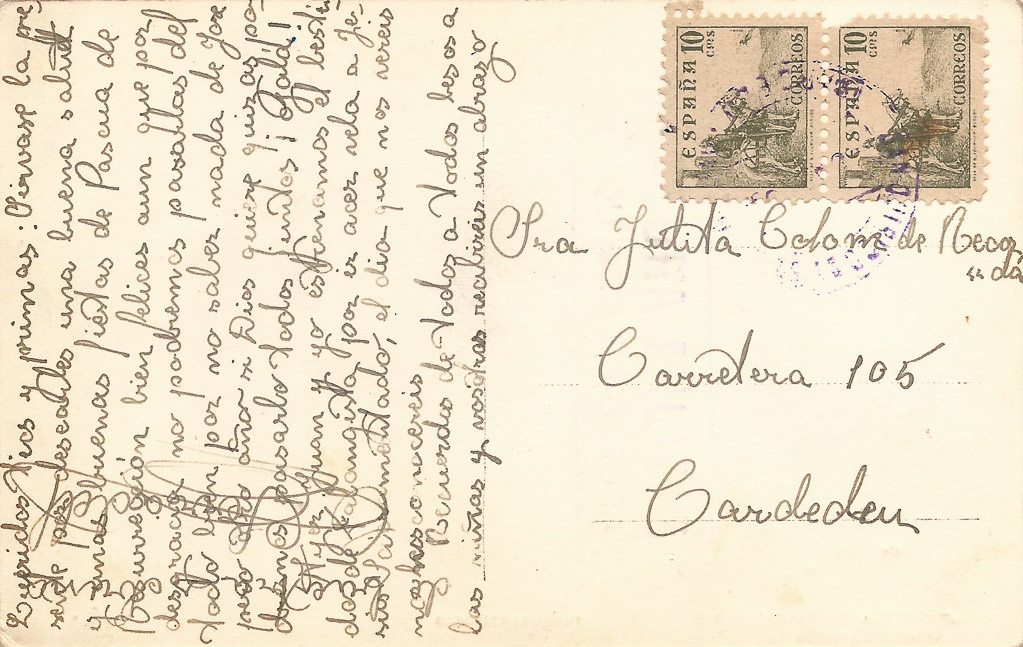 Queridos tios y primas: Sirvase la pre
sente por desearles una buena salud
y unas buenas fiestas de Pascua de
Resurreción bien felices aun que por
desgracia no podremos pasarlas del
todo bien por no saber nada de Jose
pero otro año si Dios quiere quizas po
dremos pasarlo todos juntos ¡Ojalá!
Ayer Juan y yo estrenamos el vesti
do de Falangista por ir acer vela a Je
sus Sacramentado, el dia que nos vereis
no nos conocereis
Recuerdos de todos a todos besos a
las niñas y vosotras recibireis un abrazo
ESPAÑA 10 cms CORREOS
ESPAÑA 10 cms CORREOS
Sra Julita Colom de Recor
"dá
Carretera 105
Cardedeu